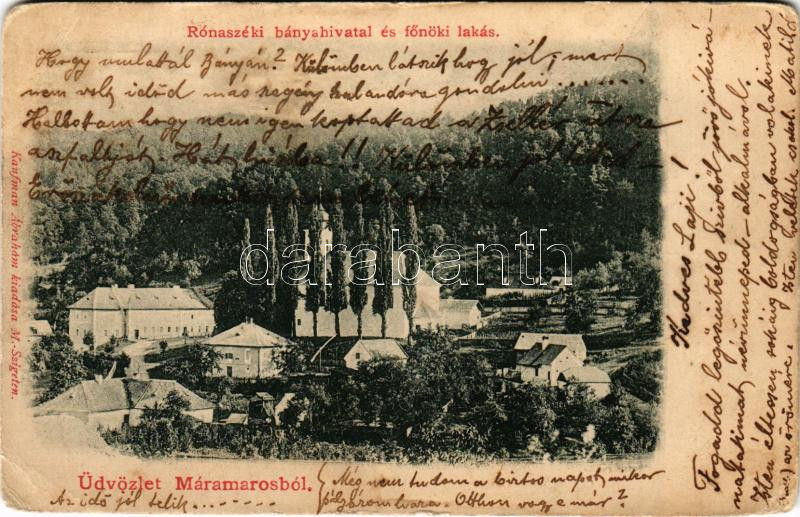 Rónaszéki bányahivatal és főnöki lakás.
Hogy mulattál Bányán? Különben látszik hog jól, mert
nem volt időd más szegény halandóra gondolni.......
Hallottam hogy nem igen koptattad a utcza
aszfaltját. Hát hiába!! Különben jól
darabanth
Kaufman Ábrahám kiadása M.-Sziget.
Üdvözlet Máramarosból.
Az idő jól telik.........
Még nem tudom a biztos napot, mikor
Otthon vagy e már?
Kedves Laji!
Fogadd legőszintébb szívből jövő jókívá-
nataimat névünneped-alkalmával.
Isten éltessen sokáig boldogságban valakinek
örömére.